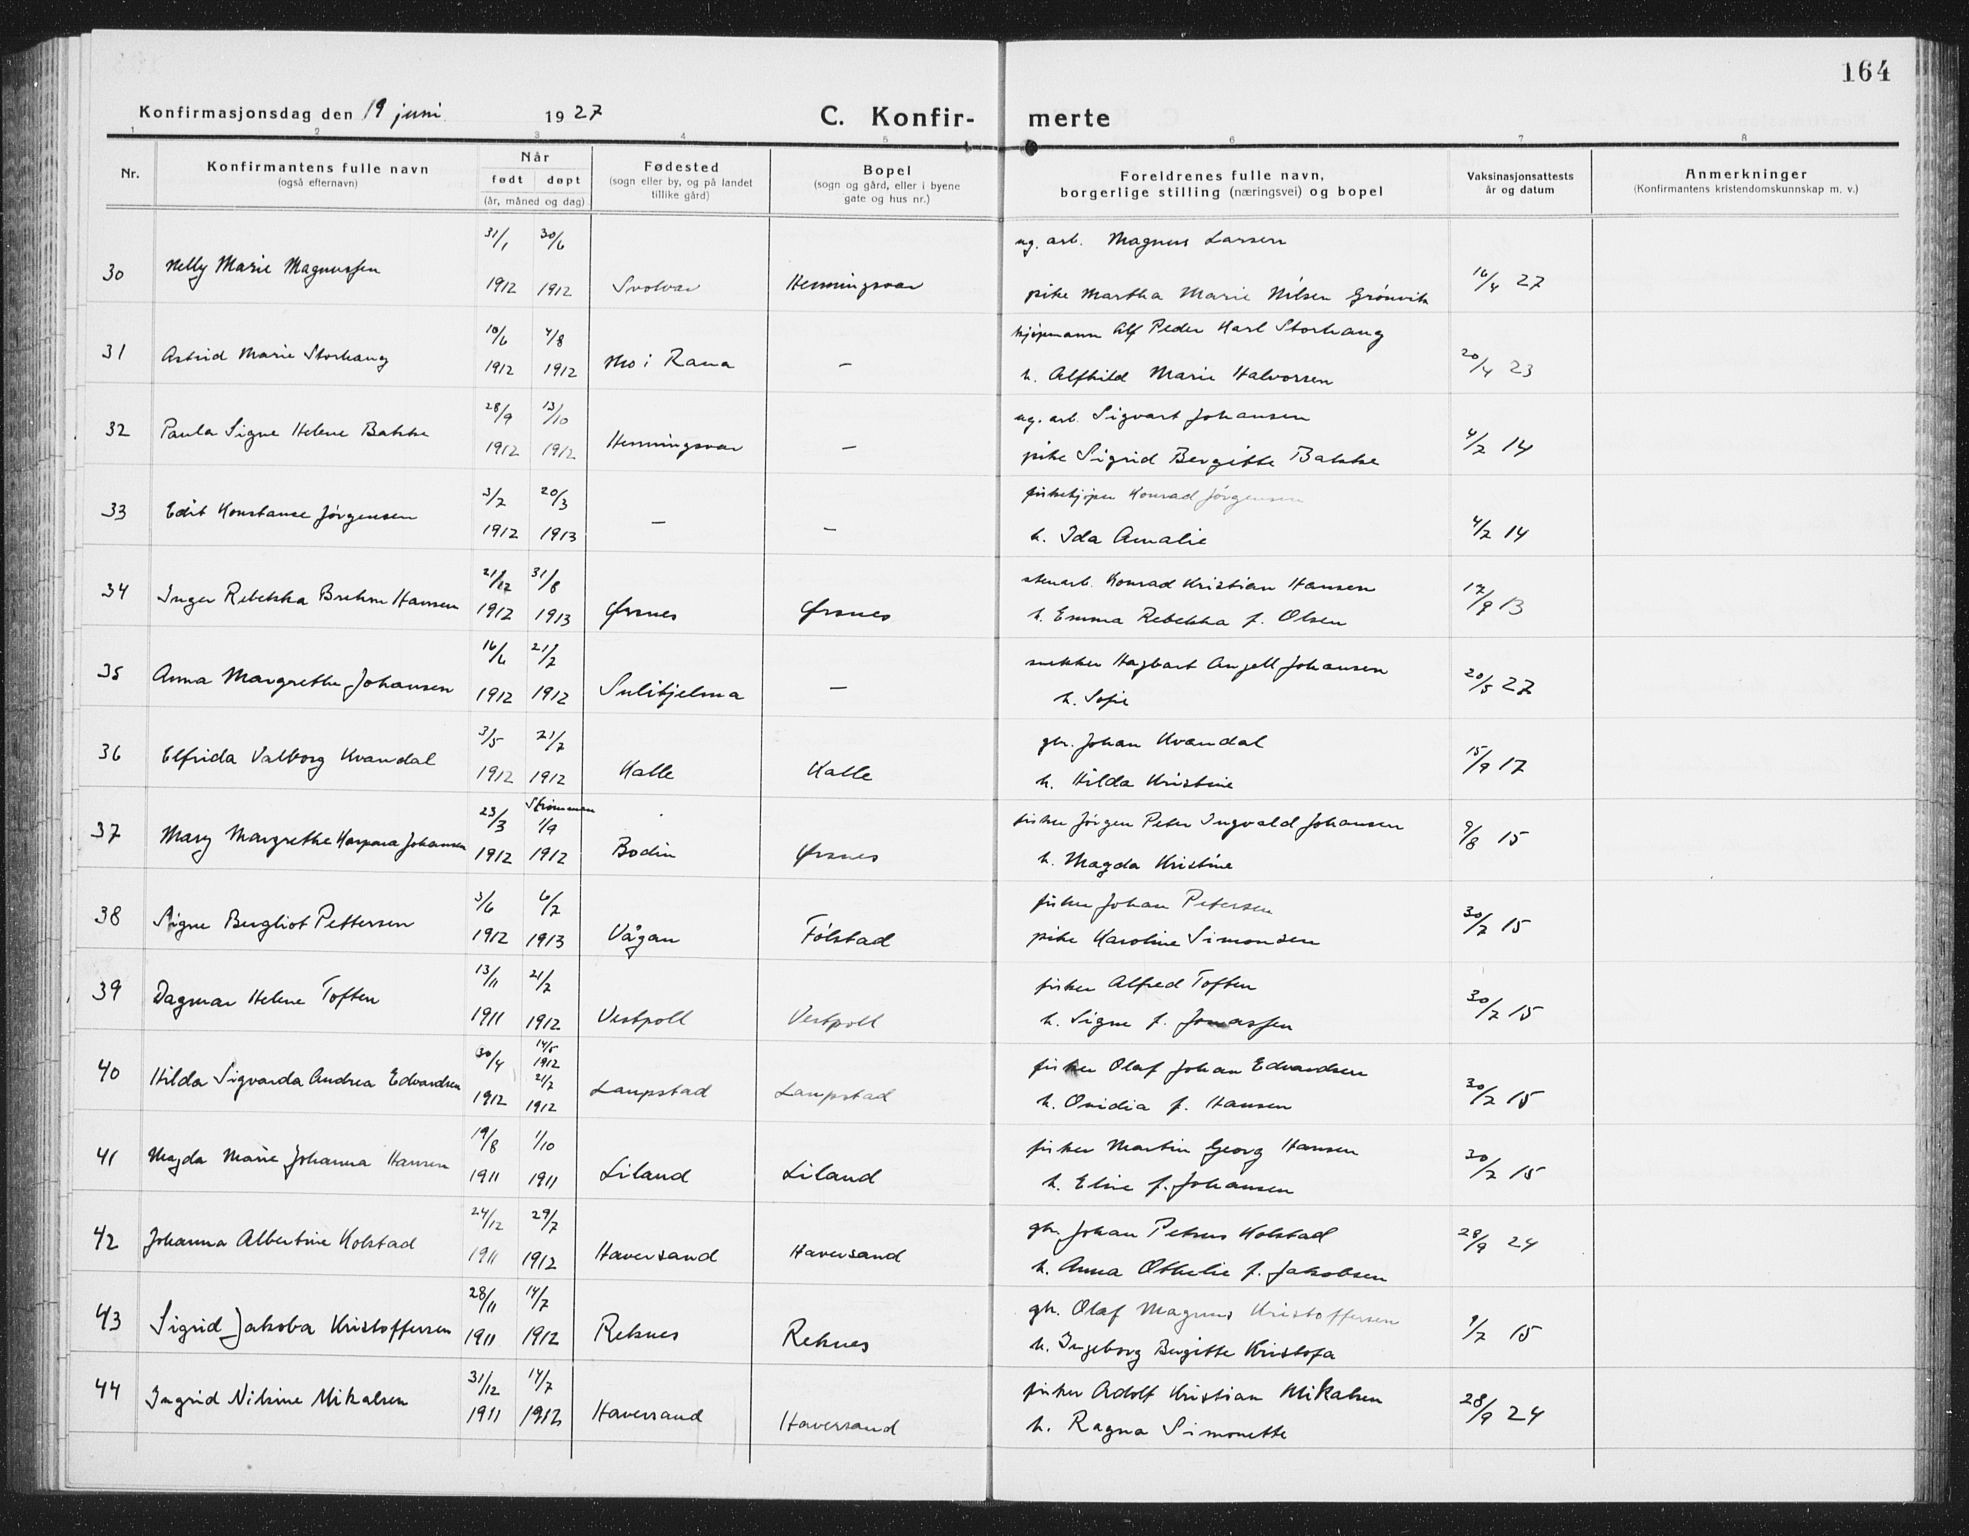 164
Konfirmasjonsdag den 19 juni 1927
C. Konfir- merte
1 2 3 4 5 6 7 8
Nr.
Konfirmantens fulle navn
(også efternavn)
Når
født døpt
(år, måned og dag)
Fødested
(sogn eller by, og på landet
tillike gård)
Bopel
(sogn og gård, eller i byene
gate og hus nr.)
Foreldrenes fulle navn,
borgerlige stilling (næringsvei) og bopel
Vaksinasjonsattests
år og datum
Anmerkninger
(Konfirmantens kristendomskunnskap m. v.)
31/1 30/6 ug. arb. Magnus Larsen
30 Nelly Marie Magnussen 1912 1912 Svolvær Henningsvær pike Martha Marie Nilsen Grönvik 16/4 27
10/6 4/8 kjöpmann Alf Peder Karl Storhaug
31 Astrid Marie Storhaug 1912 1912 Mo i Rana – h. Alfhild Marie Halvorsen 20/4 23
28/9 13/10 ug. arb. Sigvart Johansen
32 Paula Signe Helene Bakke 1912 1912 Henningsvær – pike Sigrid Bergitte Bakke 4/7 14
3/7 20/3 fiskekjöper Konrad Jörgensen
33 Edit Konstanse Jörgensen 1912 1913 – – h. Ida Amalie 4/7 14
21/12 31/8 stenarb. Konrad Kristian Hansen
34 Inger Rebekka Brehm Hansen 1912 1913 Ørsnes Ørsnes h. Emma Rebekka f. Olsen 17/9 13
16/6 21/7 snekker Hagbart Angell Johansen
35 Anna Margrethe Johansen 1912 1912 Sulitjelma – h. Sofie 20/5 27
3/5 21/7 gbr. Johan Kvandal
36 Elfrida Valborg Kvandal 1912 1912 Kalle Kalle h. Hilda Kristine 15/9 17
Strömmen
23/3 1/9 fisker Jörgen Peter Ingvald Johansen
37 Mary Margrethe Kaspara Johansen 1912 1912 Bodin Ørsnes h. Magda Kristine 9/8 15
3/6 6/7 fisker Johan Petersen
38 Signe Bergliot Pettersen 1912 1913 Vågan Fölstad pike Karoline Simonsen 30/7 15
13/11 21/7 fisker Alfred Toften
39 Dagmar Helene Toften 1911 1912 Vestpoll Vestpoll h. Signe f. Jonassen 30/7 15
30/4 14/5 1912 fisker Olaf Johan Edvardsen
40 Hilda Sigvarda Andrea Edvardsen 1912 21/7 1912 Laupstad Laupstad h. Ovidia f. Hansen 30/7 15
19/8 1/10 fisker Martin Georg Hansen
41 Magda Marie Johanna Hansen 1911 1911 Liland Liland h. Eline f. Johansen 30/7 15
24/12 29/7 gbr. Johan Petrus Kolstad
42 Johanna Albertine Kolstad 1911 1912 Haversand Haversand h. Anna Othelie f. Jakobsen 28/9 24
28/11 14/7 gbr. Olaf Magnus Kristoffersen
43 Sigrid Jakoba Kristoffersen 1911 1912 Reknes Reknes h. Ingeborg Bergitte Kristofa 1/7 15
31/12 14/7 fisker Adolf Kristian Mikalsen
44 Ingrid Nilsine Mikalsen 1911 1912 Haversand Haversand h. Ragna Simonette 28/9 24